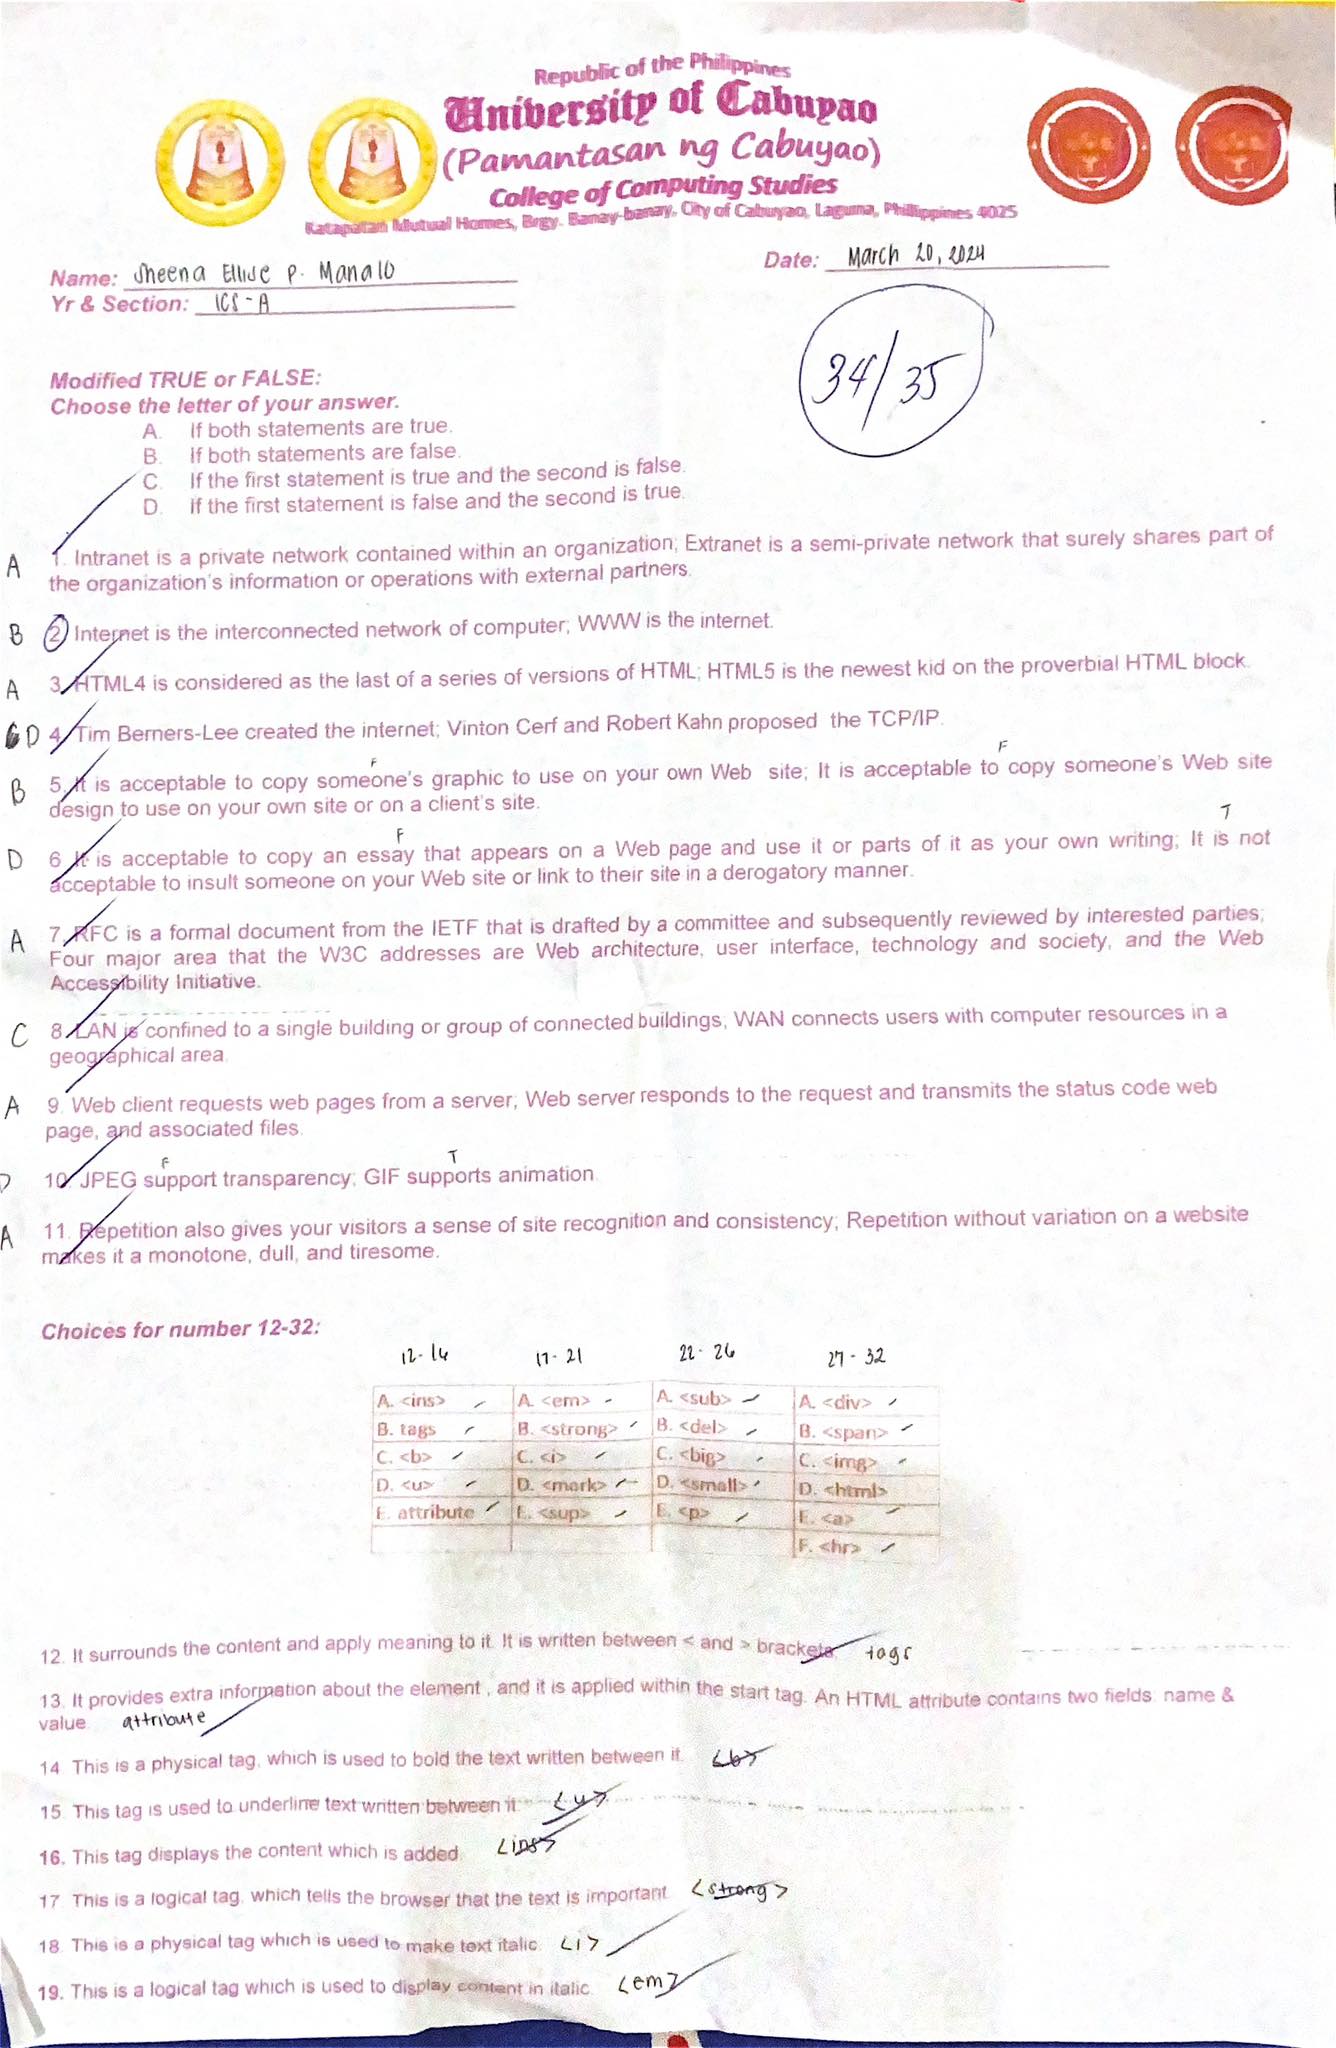 Republic of the Philippines
University of Cabuyao
(Pamantasan ng Cabuyao)
College of Computing Studies
Katapatan Mutual Homes, Brgy. Banay-banay, City of Cabuyao, Laguna, Philippines 4025
Name: Sheena Ellue P. Manalo
Date: March 20, 2024
Yr & Section: 1CS-A
34/35
Modified TRUE or FALSE:
Choose the letter of your answer.
A. If both statements are true.
B. If both statements are false.
C. If the first statement is true and the second is false.
D. If the first statement is false and the second is true.
A 1. Intranet is a private network contained within an organization; Extranet is a semi-private network that surely shares part of
the organization's information or operations with external partners.
B 2 Internet is the interconnected network of computer; WWW is the internet.
A 3. HTML4 is considered as the last of a series of versions of HTML; HTML5 is the newest kid on the proverbial HTML block.
D 4. Tim Berners-Lee created the internet; Vinton Cerf and Robert Kahn proposed the TCP/IP.
F F
B 5. It is acceptable to copy someone's graphic to use on your own Web site; It is acceptable to copy someone's Web site
design to use on your own site or on a client's site.
F T
D 6. It is acceptable to copy an essay that appears on a Web page and use it or parts of it as your own writing; It is not
acceptable to insult someone on your Web site or link to their site in a derogatory manner.
A 7. RFC is a formal document from the IETF that is drafted by a committee and subsequently reviewed by interested parties;
Four major area that the W3C addresses are Web architecture, user interface, technology and society, and the Web
Accessibility Initiative.
C 8. LAN is confined to a single building or group of connected buildings; WAN connects users with computer resources in a
geographical area.
A 9. Web client requests web pages from a server; Web server responds to the request and transmits the status code web
page, and associated files.
F T
D 10. JPEG support transparency; GIF supports animation.
A 11. Repetition also gives your visitors a sense of site recognition and consistency; Repetition without variation on a website
makes it a monotone, dull, and tiresome.
Choices for number 12-32:
12-16 17-21 22-26 27-32
A. <ins> A. <em> A. <sub> A. <div>
B. tags B. <strong> B. <del> B. <span>
C. <b> C. <i> C. <big> C. <img>
D. <u> D. <mark> D. <small> D. <html>
E. attribute E. <sup> E. <p> E. <a>
F. <hr>
12. It surrounds the content and apply meaning to it. It is written between < and > brackets. tags
13. It provides extra information about the element, and it is applied within the start tag. An HTML attribute contains two fields: name &
value. attribute
14. This is a physical tag, which is used to bold the text written between it. <b>
15. This tag is used to underline text written between it. <u>
16. This tag displays the content which is added. <ins>
17. This is a logical tag, which tells the browser that the text is important. <strong>
18. This is a physical tag which is used to make text italic. <i>
19. This is a logical tag which is used to display content in italic. <em>